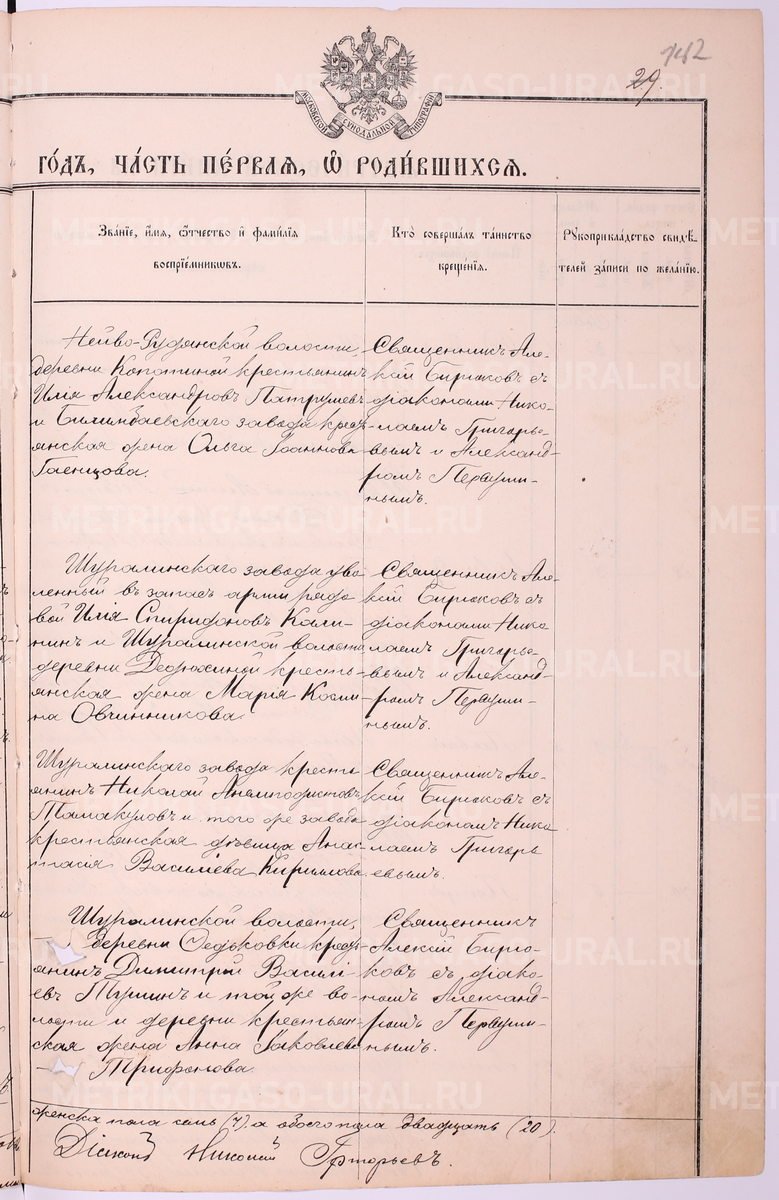 142
29.
МОСКОВСКОЙ СѴНОДАЛЬНОЙ ТИПОГРАФІИ
ГО́ДЪ, ЧА́СТЬ ПЕ́РВАѦ, Ѿ РОДИ́ВШИХСѦ.
Зва́нїе, и́мѧ, ѻ́тчество и҆ фами́лїѧ
воспрїе́мникѡвъ.
Кто̀ соверша́лъ та́инство
креще́нїѧ.
Рꙋкоприкла́дство свидѣ́-
телей за́писи по жела́нїю.
Нейво-Рудянской волости,
деревни Копотиной крестьянинъ
Илія Александровъ Патрушевъ
и Билимбаевскаго завода крес
янская жена Ольга Іоаннова
Священникъ Але-
ксій Бирюковъ съ
діаконами Нико-
лаемъ Григорье-
вымъ и Александ-
ромъ Первуши-
нымъ.
Шуралинскаго завода уво
ленный въ запасъ арміи рядо
вой Илія Спиридоновъ Кали-
нинъ и Шуралинской волости
деревни Дедюхиной кресть-
янская жена Марія Косми-
на Овчинникова.
Священникъ Але-
ксій Бирюковъ съ
діаконами Нико
лаемъ Григорье-
вымъ и Александ-
ромъ Первуши-
нымъ.
Шуралинскаго завода кресть
янинъ Николай Анемподистовъ
Тамакуловъ и того же завода
крестьянская дѣвица Анас-
тасія Василіева Кириллова.
Священникъ Але-
ксій Бирюковъ съ
діакономъ Нико
лаемъ Григорь
евымъ.
Шуралинской волости,
деревни Федьковки кресть
янинъ Димитрій Васили-
евъ Тушинъ и той же во-
лости и деревни крестьян-
ская жена Анна Іаковлева
Трифонова.
Священникъ
Алексій Бирю-
ковъ съ діако-
номъ Александ-
ромъ Первуши-
нымъ.
женска пола семь (7), а обоего пола двадцать (20).
Діаконъ Николай Григорьевъ.
METRIKI.GASO-URAL.RU